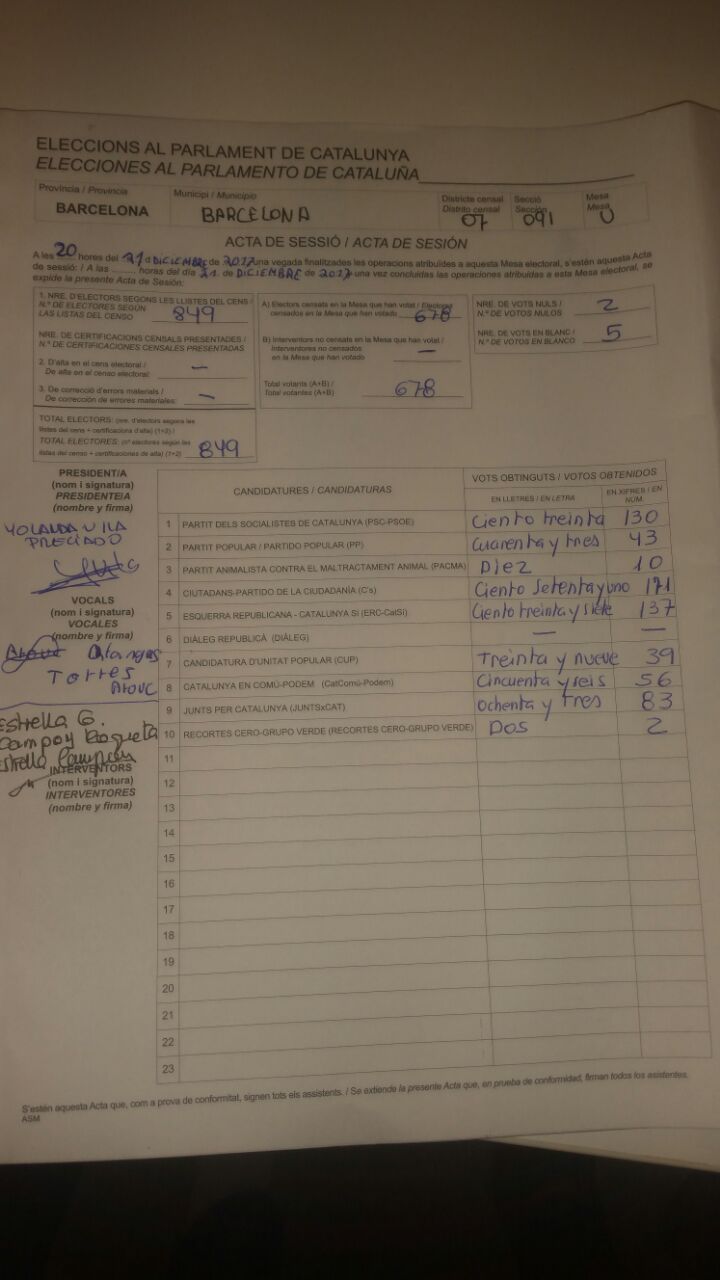 ELECCIONS AL PARLAMENT DE CATALUNYA
ELECCIONES AL PARLAMENTO DE CATALUÑA
Província / Provincia
BARCELONA
Municipi / Municipio
BARCELONA
Districte censal
Distrito censal
07
Secció
Sección
091
Mesa
Mesa
U
ACTA DE SESSIÓ / ACTA DE SESIÓN
A les 20 hores del 21 de DICIEMBRE de 2017 una vegada finalitzades les operacions atribuïdes a aquesta Mesa electoral, s'estén aquesta Acta
de sessió: / A las ........ horas del día 21 de DICIEMBRE de 2017 una vez concluidas las operaciones atribuidas a esta Mesa electoral, se
expide la presente Acta de Sesión:
1. NRE. D'ELECTORS SEGONS LES LLISTES DEL CENS /
N.º DE ELECTORES SEGÚN
LAS LISTAS DEL CENSO 849
NRE. DE CERTIFICACIONS CENSALS PRESENTADES /
N.º DE CERTIFICACIONES CENSALES PRESENTADAS
2. D'alta en el cens electoral /
De alta en el censo electoral: —
3. De correcció d'errors materials /
De corrección de errores materiales: —
TOTAL ELECTORS: (nre. d'electors segons les
llistes del cens + certificacions d'alta) (1+2) /
TOTAL ELECTORES: (nº electores según las
listas del censo + certificaciones de alta) (1+2) 849
A) Electors censats en la Mesa que han votat / Electores
censados en la Mesa que han votado 678
B) Interventors no censats en la Mesa que han votat /
Interventores no censados
en la Mesa que han votado —
Total votants (A+B) /
Total votantes (A+B) 678
NRE. DE VOTS NULS /
N.º DE VOTOS NULOS 2
NRE. DE VOTS EN BLANC /
N.º DE VOTOS EN BLANCO 5
PRESIDENT/A
(nom i signatura)
PRESIDENTE/A
(nombre y firma)
YOLANDA VILA
PRECIADO
VOCALS
(nom i signatura)
VOCALES
(nombre y firma)
Torres
Estrella G.
Campoy Roqueta
Estrella Campoy
INTERVENTORS
(nom i signatura)
INTERVENTORES
(nombre y firma)
CANDIDATURES / CANDIDATURAS
VOTS OBTINGUTS / VOTOS OBTENIDOS
EN LLETRES / EN LETRA
EN XIFRES / EN NÚM.
1 PARTIT DELS SOCIALISTES DE CATALUNYA (PSC-PSOE) Ciento treinta 130
2 PARTIT POPULAR / PARTIDO POPULAR (PP) Cuarenta y tres 43
3 PARTIT ANIMALISTA CONTRA EL MALTRACTAMENT ANIMAL (PACMA) Diez 10
4 CIUTADANS-PARTIDO DE LA CIUDADANÍA (C's) Ciento setenta y uno 171
5 ESQUERRA REPUBLICANA - CATALUNYA SÍ (ERC-CatSí) Ciento treinta y siete 137
6 DIÀLEG REPUBLICÀ (DIÀLEG) — —
7 CANDIDATURA D'UNITAT POPULAR (CUP) Treinta y nueve 39
8 CATALUNYA EN COMÚ-PODEM (CatComú-Podem) Cincuenta y seis 56
9 JUNTS PER CATALUNYA (JUNTSxCAT) Ochenta y tres 83
10 RECORTES CERO-GRUPO VERDE (RECORTES CERO-GRUPO VERDE) Dos 2
11
12
13
14
15
16
17
18
19
20
21
22
23
S'estén aquesta Acta que, com a prova de conformitat, signen tots els assistents. / Se extiende la presente Acta que, en prueba de conformidad, firman todos los asistentes.
ASM